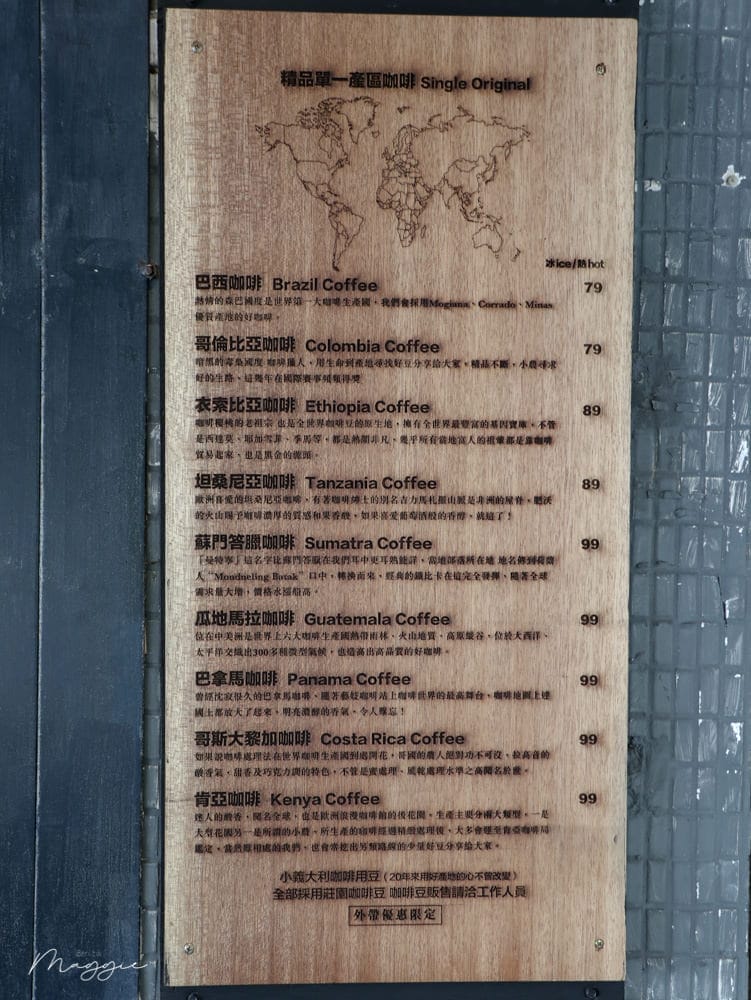 精品單一產區咖啡 Single Original
冰ice/熱hot
巴西咖啡 Brazil Coffee 79
熱情的森巴國度是世界第一大咖啡生產國,我們會採用Mogiana、Corrado、Minas
優質產地的好咖啡。
哥倫比亞咖啡 Colombia Coffee 79
暗黑的毒梟國度 咖啡獵人,用生命到產地尋找好豆分享給大家,精品不斷,小農尋求
好的生路、這幾年在國際賽事頻頻得獎
衣索比亞咖啡 Ethiopia Coffee 89
咖啡櫻桃的老祖宗 也是全世界咖啡豆的原生地,擁有全世界最豐富的基因寶庫,不管
是西達莫、耶加雪菲、季馬等,都是熱鬧非凡、幾乎所有當地富人的祖輩都是靠咖啡
貿易起家、也是黑金的源頭。
坦桑尼亞咖啡 Tanzania Coffee 89
歐洲喜愛的坦桑尼亞咖啡、有著咖啡紳士的別名吉力馬札羅山脈是非洲的屋脊,肥沃
的火山賜予咖啡濃厚的質感和果香酸,如果喜愛葡萄酒般的香醇,就這了!
蘇門答臘咖啡 Sumatra Coffee 99
「曼特寧」這名字比蘇門答臘在我們耳中更耳熟能詳,當地部落所在地 地名傳到荷蘭
人“Mondneling Batak”口中,轉換而來、經典的鐵比卡在這完全發揮、隨著全球
需求量大增,價格水漲船高。
瓜地馬拉咖啡 Guatemala Coffee 99
位在中美洲是世界上六大咖啡生產國熱帶雨林、火山地質、高原縱谷、位於大西洋、
太平洋交織出300多種微型氣候,也造高出高品質的好咖啡。
巴拿馬咖啡 Panama Coffee 99
曾經沈寂很久的巴拿馬咖啡、隨著藝妓咖啡站上咖啡世界的最高舞台、咖啡地圖上連
國土都放大了起來,明亮濃醇的香氣、令人難忘!
哥斯大黎加咖啡 Costa Rica Coffee 99
如果說咖啡處理法在世界咖啡生產國到處開花,哥國的農人絕對功不可沒、拉高音的
酸香氣,甜香及巧克力調的特色,不管是蜜處理、風乾處理水準之高聞名於世。
肯亞咖啡 Kenya Coffee 99
迷人的酸香,聞名全球,也是歐洲浪漫咖啡館的後花園、生產主要分兩大類型、一是
大型花園另一是所謂的小農、所生產的咖啡經過精緻處理後、大多會運至肯亞咖啡局
鑑定、當然難相處的我們、也會常挖出另類路線的少量好豆分享給大家。
小義大利咖啡用豆(20年來用好產地的心不曾改變)
全部採用莊園咖啡豆 咖啡豆販售請洽工作人員
外帶優惠限定
Maggie